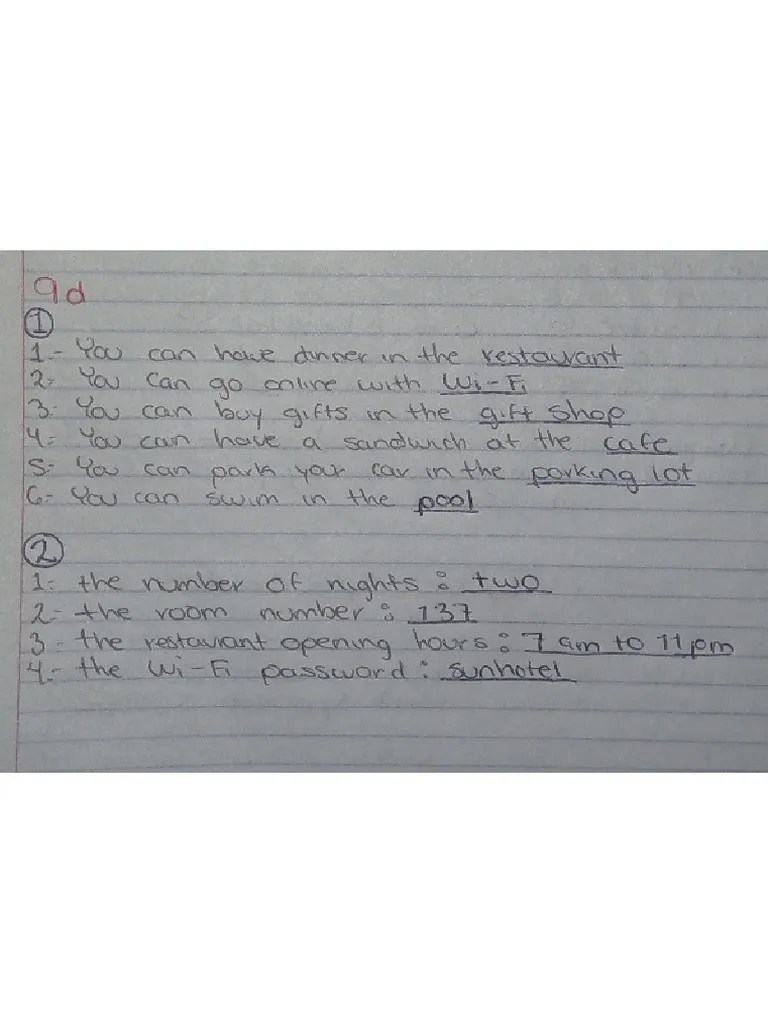 9d
1
1.- You can have dinner in the restaurant
2.- You can go online with Wi-Fi
3.- You can buy gifts in the gift shop
4.- You can have a sandwich at the cafe
5.- You can park your car in the parking lot
6.- You can swim in the pool
2
1.- the number of nights : two
2.- the room number : 137
3.- the restaurant opening hours : 7 am to 11 pm
4.- the Wi-Fi password : sunhotel